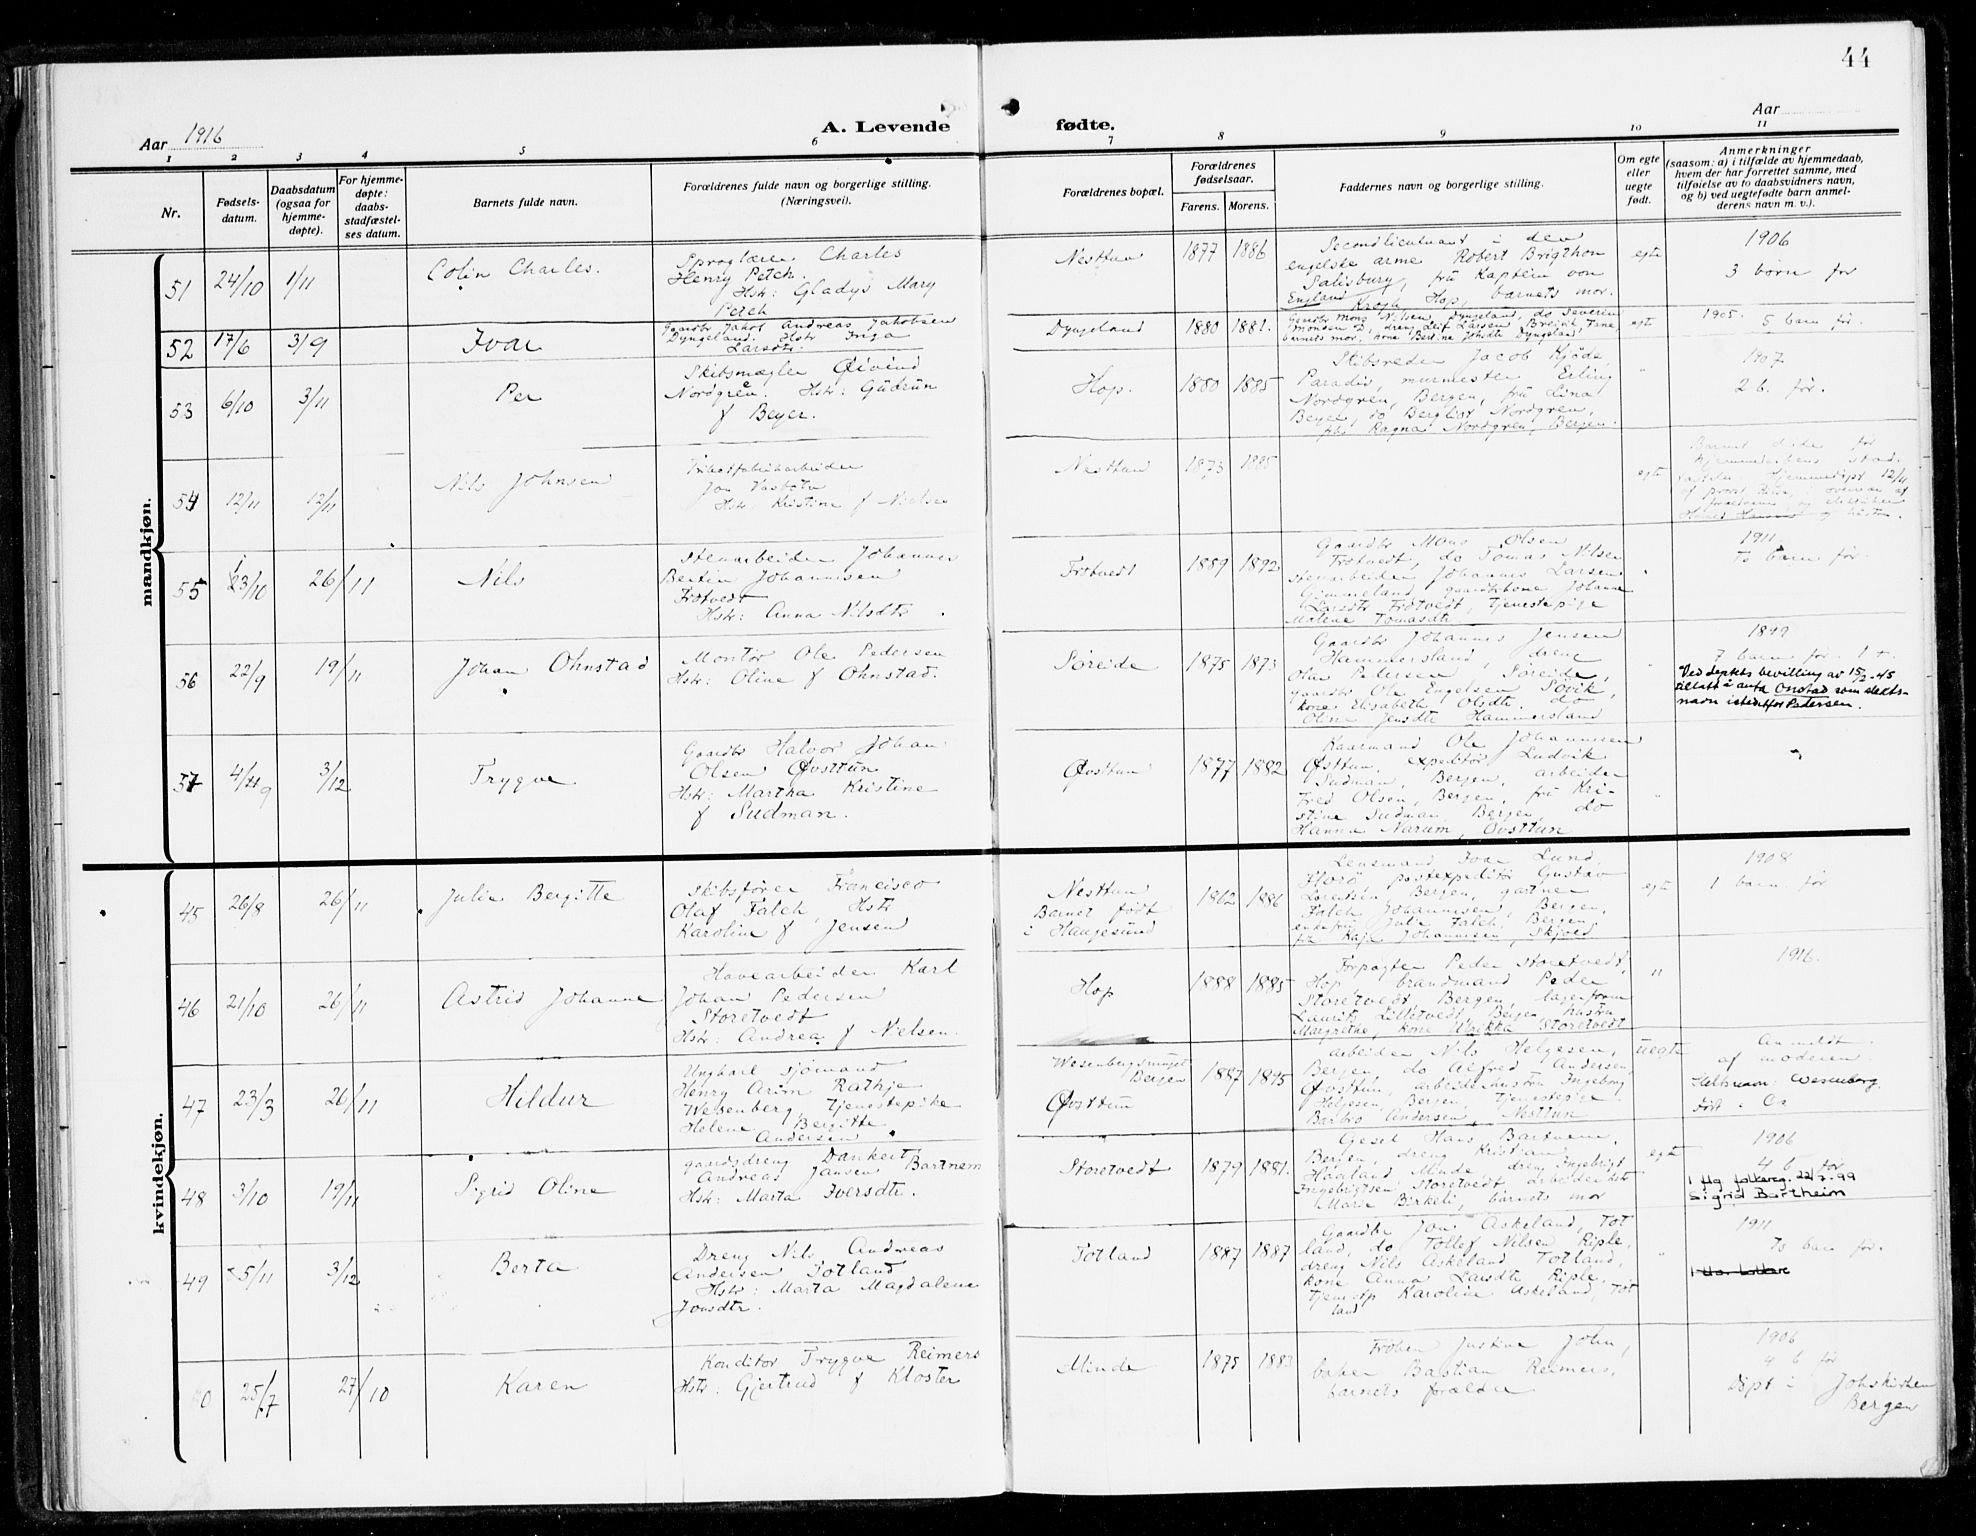 44
Aar 1916
A. Levende fødte.
Aar
1 2 3 4 5 6 7 8 9 10 11
Nr.
Fødsels-
datum.
Daabsdatum
(ogsaa for
hjemme-
døpte).
For hjemme-
døpte:
daabs-
stadfæstel-
ses datum.
Barnets fulde navn.
Forældrenes fulde navn og borgerlige stilling.
(Næringsvei).
Forældrenes bopæl.
Forældrenes
fødselsaar.
Farens. Morens.
Faddernes navn og borgerlige stilling.
Om egte
eller
uegte
født.
Anmerkninger
(saasom: a) i tilfælde av hjemmedaab,
hvem der har forrettet samme, med
tilføielse av to daabsvidners navn,
og b) ved uegtefødte barn anmel-
derens navn m. v.).
mandkjøn.
51 24/10 1/11 Colin Charles.
Sproglærer Charles
Henry Petch.
Hstr: Gladys Mary
Petch
Nesttun 1877 1886
Secondlieutnant i den
engelske arme Robert Brigthon
Salisbury, frü Kaptein von
England Krogh Hop, barnets mor.
egte
1906
3 børn før
52 17/6 3/9 Ivar
Gaardbr Jakob Andreas Jakobsen
Dyngeland. Hstr Inga
Larsdtr.
Dyngeland 1880 1881.
Gaardbr Mons Nilsen Dyngeland, do Severin
Monsen D, dreng Leif Larsen Breivik, Fane
barnets mor, kone Bertine Johsdtr Dyngeland
egte
1905. 5 barn før.
53 6/10 3/11 Per
Skibsmægler Øivind
Nordgren. Hstr: Gudrun
f Beyer.
Hop. 1880 1885
Skibsreder Jacob Kjøde,
Paradis, murmester Erling
Nordgren, Bergen, frü Lina
Beyer, do Bergliot Nordgren,
frk. Ragna Nordgren, Bergen.
"
1907
2 b. før.
54 12/11 12/11 Nils Johnsen
Trikotfabrikarbeider
Jon
Hstr: Kristine f Nielsen
Nesttun 1873 1885
egte
Barnet døde før
hjemmedaabens stad-
fæstelse. Hjemmedøpt 12/11
af provst
55 23/10 26/11 Nils
Stenarbeider Johannes
Bertin Johannesen
Frotvedt
Hstr: Anna Nilsdtr.
Frotvedt 1889 1892
Gaardbr Mons Olsen
Frotvedt, do Tomas Nilsen
stenarbeider Johannes Larsen
Gimmeland, gaardbrkone Johanne
Larsdtr Frotvedt, tjenestepige
Malene Tomasdtr
1911.
To barn før.
56 22/9 19/11 Johan Ohnstad
Montør Ole Pedersen
Hstr: Oline f Ohnstad.
Søreide 1875 1873
Gaardbr Johannes Jensen
Hammersland, dreng
Olai Pedersen Søreide,
gaardbr Ole Engelsen Søvik,
kone Elisabeth Olsdtr, do
Oline Jensdtr Hammersland
"
1899
7 barn før. 1 +.
Ved deptets bevilling av 15/2-45
tillatt å anta Onstad som slekts-
navn istedetfor Pedersen.
57 4/9 3/12 Trygve
Gaardbr Halvor Johan
Olsen Øvsttun
Hstr: Martha Kristine
f Sudman.
Øvsttun 1877 1882
Kaarmand Ole Johannesen
Østtun, expeditør Ludvik
Sudman, Bergen, arbeider
Fred Olsen, Bergen, frü Kri-
stine Sudman, Bergen, do
Hanna Narum, Øvsttun
"
kvindekjøn.
45 26/8 26/11 Julie Bergitte
Skibsfører Francisco
Olaf Falch, Hstr
Karoline f Jensen
Nesttun
Barnet født
i Haugesund
1862 1886
Lensmand Ivar Lund,
postexpeditør Gustav
Lorentsen Bergen, gartner
Falch Johannesen, Bergen,
enkefrü Julie Falch, Bergen
frk Johannesen, Skjold
egte
1908
1 barn før
46 21/10 26/11 Astrid Johanne
Havearbeider Karl
Johan Pedersen
Storetvedt
Hstr: Andrea f Nielsen.
Hop 1888 1885
Forpagter Peder Storetvedt,
Hop, brandmand Peder
Storetvedt, Bergen, lagerform
Laurits Lilletvedt, Bergen hustru
Margrethe, kone Storetvedt
"
1916.
47 23/3 26/11 Hildur
Ungkarl sjømand
Henry Arim Rathje
Wesenberg, tjenestepike
Helene Bergitte
Andersen
Wesenbergsmuget
Bergen
Øvsttun
1887 1895
arbeider Nils Helgesen,
Bergen, do Alfred Andersen,
Øvsttun, arbeiderhustru Ingeborg
Helgesen, Bergen, tjenestepige
Barbro Andersen, Nesttun
uegte
Anmeldt
af moderen
Wesenberg.
født i Os
48 3/10 19/11 Sigrid Oline
gaardsdreng Dankert
Andreas Jansen Bartnem
Hstr: Marta Iversdtr.
Storetvedt 1879 1881.
Gesel Hans Bartnem,
Bergen, dreng Kristian
Haaland Minde, dreng Ingebrigt
Ingebrigtsen Storetvedt arbeiderhstr
Marie Birkeli, barnets mor
egte
1906
4 b før
1 flg folkereg. 22/3-99
Sigrid Bartheim
49 5/11 3/12 Berta
Dreng Nils Andreas
Andersen Totland
Hstr: Marta Magdalena
Jonsdtr.
Totland 1887 1887
Gaardbr Jon Askeland, Tot
land, do Tollef Nilsen Riple,
dreng Nils Askeland Totland,
kone Anna Larsdtr Riple,
tjenesp Karoline Askeland, Tot
land
"
1911
To barn før.
0 25/7 27/10 Karen
Konditor Trygve Reimers
Hstr: Gjertrud f Kloster
Minde 1875 1883
Frøken Justine John,
baker Bastian Reimers,
barnets forældre
1906
4 b før
Døpt i Johskirken
Bergen